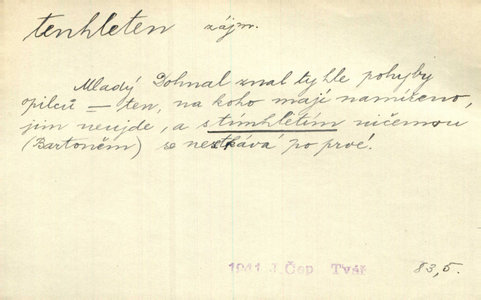 tenhleten zájm.
Mladý Dohnal znal tyhle pohyby
opilců — ten, na koho mají namířeno,
jim neujde, a s tímhletím ničemou
(Bartoněm) se nesetkává po prvé.
1941 J. Čep Tvář 83,5.